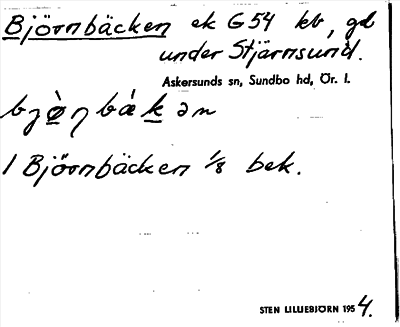 Björnbäcken ek G54 kb, gd
under Stjärnsund.
Askersunds sn, Sundbo hd, Ör. l.
bjò̤ŋbák ən
1 Björnbäcken 1/8 bek.
STEN LILLIEBJÖRN 1954.